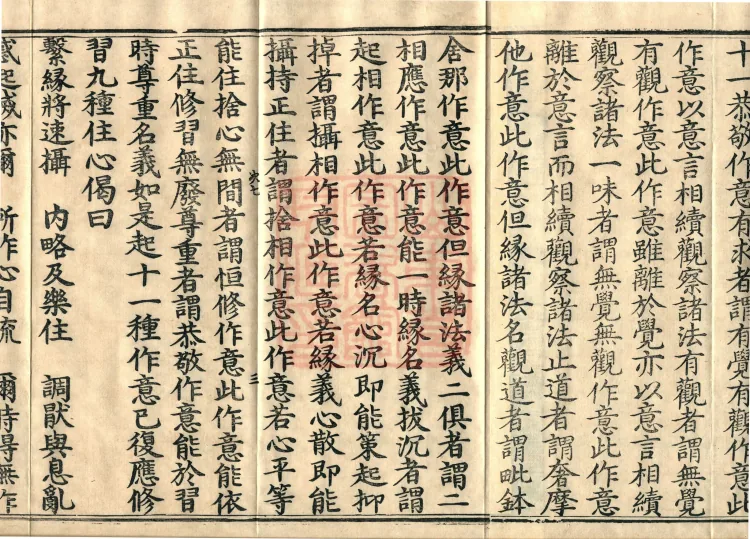 十一恭敬作意有求者謂有覺有觀作意此
作意以意言相續觀察諸法有觀者謂無覺
有觀作意此作意雖離於覺亦以意言相續
觀察諸法一味者謂無覺無觀作意此作意
離於意言而相續觀察諸法止道者謂奢摩
他作意此作意但緣諸法名觀道者謂毗鉢
舍那作意此作意但緣諸法義二俱者謂二
相應作意此作意能一時緣名義拔沉者謂
起相作意此作意若緣名心沉即能策起抑
掉者謂攝相作意此作意若緣義心散即能
攝持正住者謂捨相作意此作意若心平等
三
能住捨心無間者謂恒修作意此作意能依
正住修習無廢尊重者謂恭敬作意能於習
時尊重名義如是起十一種作意已復應修
習九種住心偈曰
繫緣將速攝 内略及樂住 調猒與息亂
惑起滅亦爾 所作心自流 爾時得無作